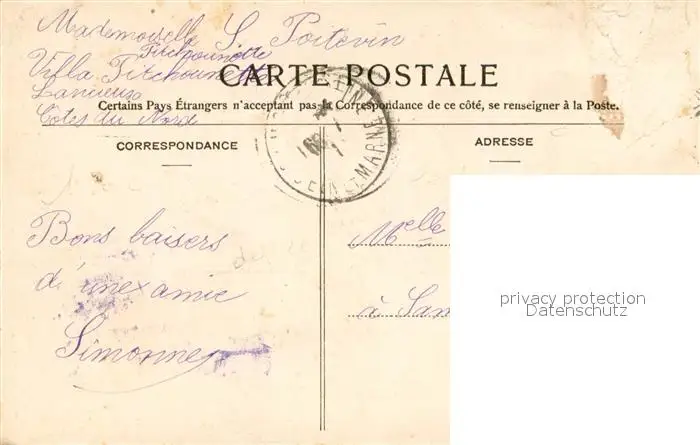 Mademoiselle S. Poitevin
Titchounette
Villa Titchounette
Lancieux
Côtes du Nord
CARTE POSTALE
Certains Pays Étrangers n'acceptant pas la Correspondance de ce côté, se renseigner à la Poste.
CORRESPONDANCE
ADRESSE
SEINE ET MARNE
Bons baisers
d'une amie
Simonne
Melle
à
privacy protection
Datenschutz